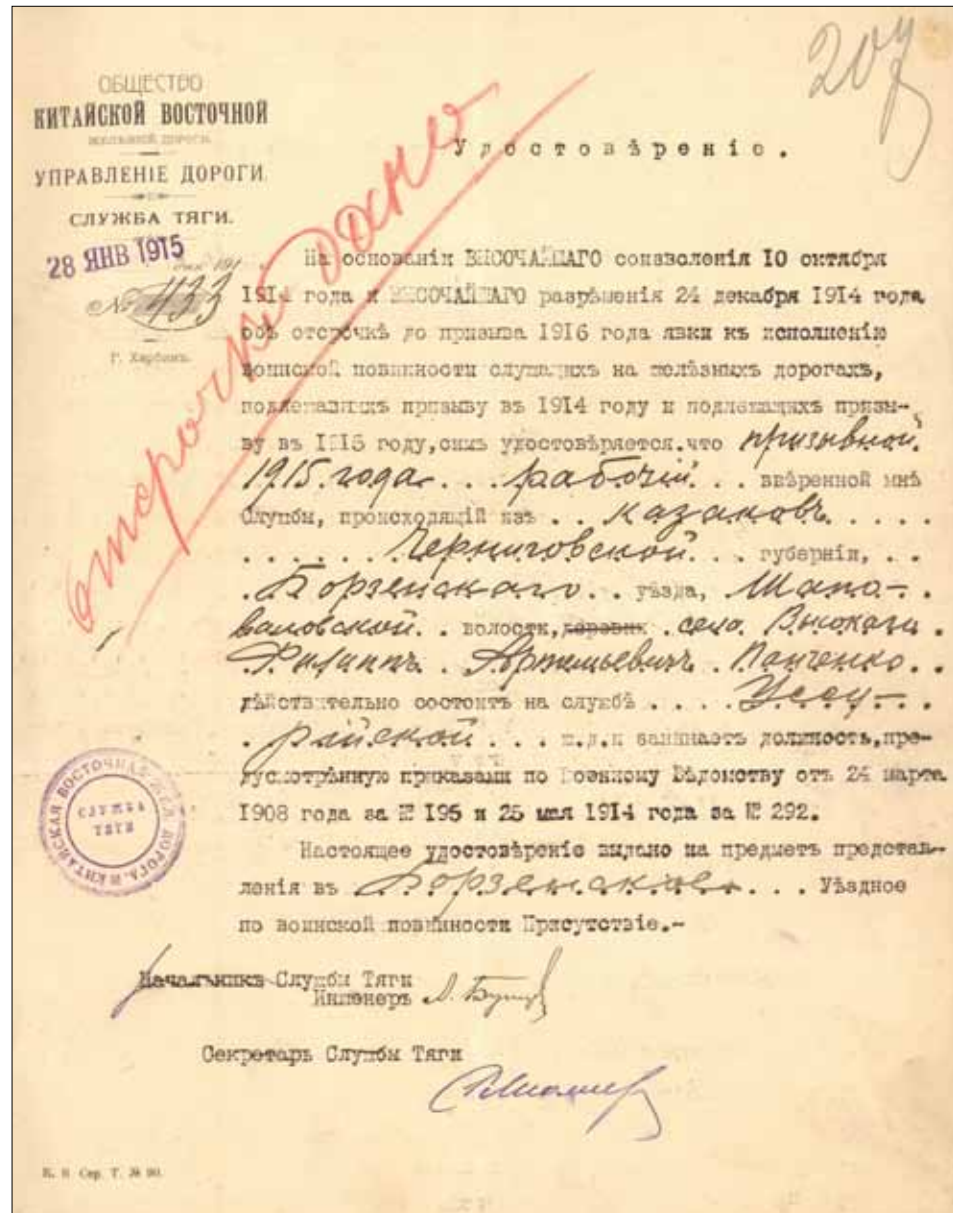 207
ОБЩЕСТВО
КИТАЙСКОЙ ВОСТОЧНОЙ
ЖЕЛѢЗНОЙ ДОРОГИ.
УПРАВЛЕНІЕ ДОРОГИ.
СЛУЖБА ТЯГИ.
28 ЯНВ 1915
дня 191
№ 433
Г. Харбинъ.
Удостовѣреніе.
отсрочки дано
На основаніи ВЫСОЧАЙШАГО соизволенія 10 октября
1914 года и ВЫСОЧАЙШАГО разрѣшенія 24 декабря 1914 года
объ отсрочкѣ до призыва 1916 года явки къ исполненію
воинской повинности служащихъ на желѣзныхъ дорогахъ,
подлежавшихъ призыву въ 1914 году и подлежащихъ призы-
ву въ 1915 году, симъ удостовѣряется.что призывной
1915 года . . . рабочій . . . ввѣренной мнѣ
Службы, происходящій изъ . . казаковъ . . . . .
. . . . . . Черниговской . . . губерніи, . .
. Борзенскаго . . уѣзда, Шапо- .
валовской . . волости, деревни . село
Филиппъ . Артемьевичъ . Панченко . .
дѣйствительно состоитъ на службѣ . . . . Уссу- . .
. рійской . . . ж.д.и занимаетъ должность,пре-
дусмотрѣнную приказами по Военному Вѣдомству отъ 24 марта
1908 года за № 195 и 25 мая 1914 года за № 292.
Настоящее удостовѣреніе выдано на предметъ представ-
ленія въ Борзенское . . . Уѣздное
по воинской повинности Присутствіе.-
КИТАЙСКАЯ ВОСТОЧНАЯ ЖЕЛ. ДОРОГА
СЛУЖБА
ТЯГИ
Начальникъ Службы Тяги
Инженеръ
Секретарь Службы Тяги
К. В. Сер. Т. № 90.